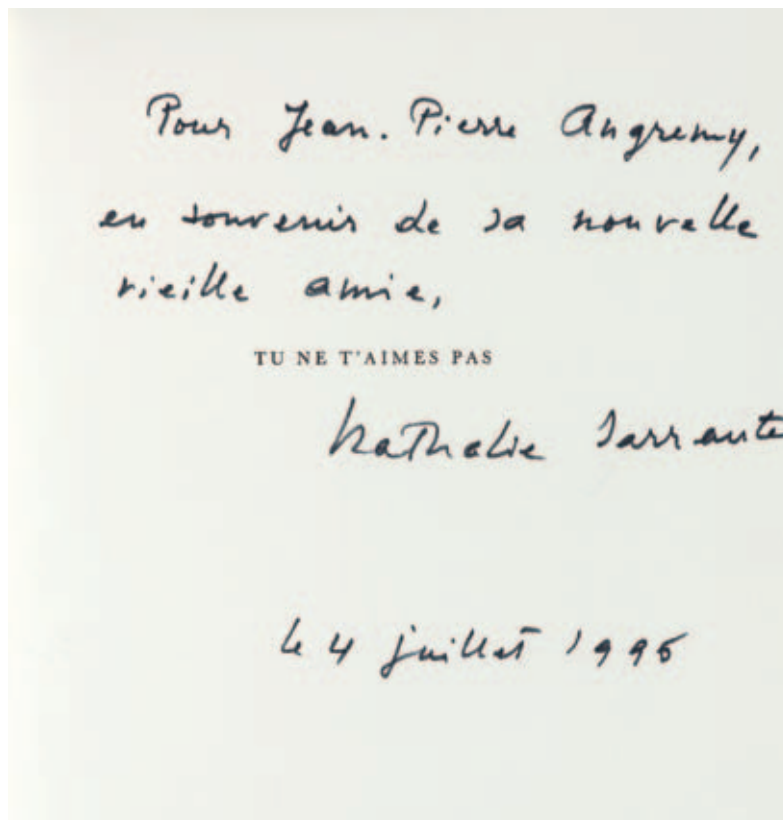 Pour Jean-Pierre Angremy,
en souvenir de sa nouvelle
vieille amie,
TU NE T'AIMES PAS
Nathalie Sarraute
le 4 juillet 1996